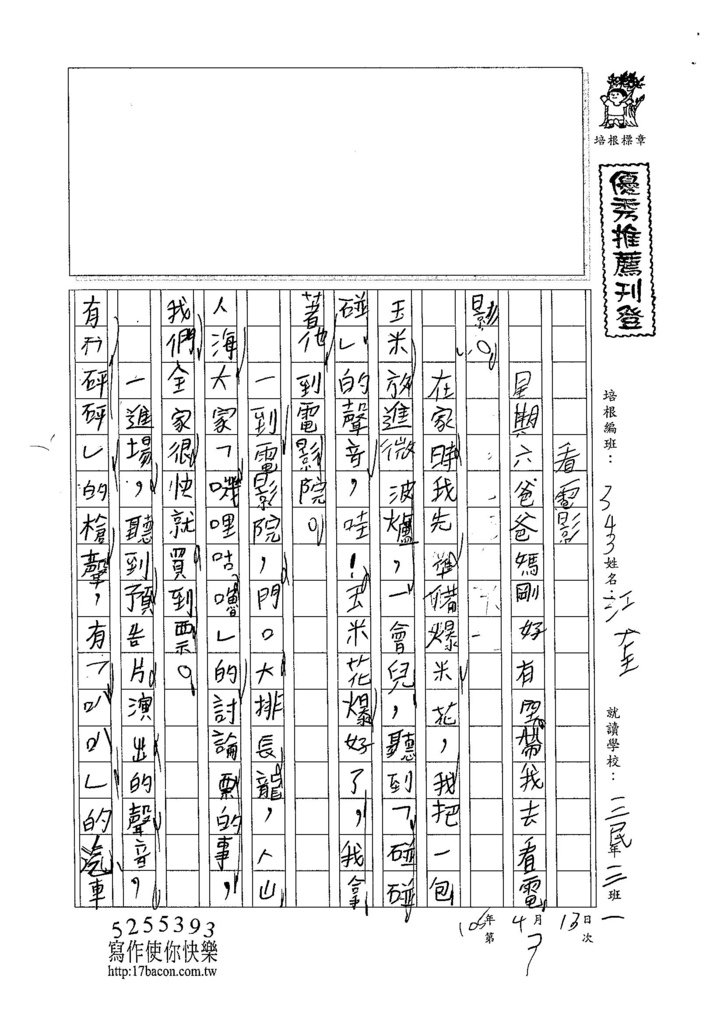 培根標章
優秀推薦刊登
培根編班：343 姓名：江 就讀學校：三民 三年一班
106年4月13日
第7次
看電影
星期六爸爸媽剛好有空帶我去看電
影。
在家時我先準備爆米花，我把一包
玉米放進微波爐，一會兒，聽到「碰碰
碰」的聲音，哇！玉米花爆好了，我拿
著他到電影院。
一到電影院，門口大排長龍，人山
人海大家「嘰哩咕嚕」的討論票的事，
我們全家很快就買到票。
一進場，聽到預告片演出的聲音，
有「砰砰」的槍聲，有「叭叭」的汽車
5255393
寫作使你快樂
http:17bacon.com.tw